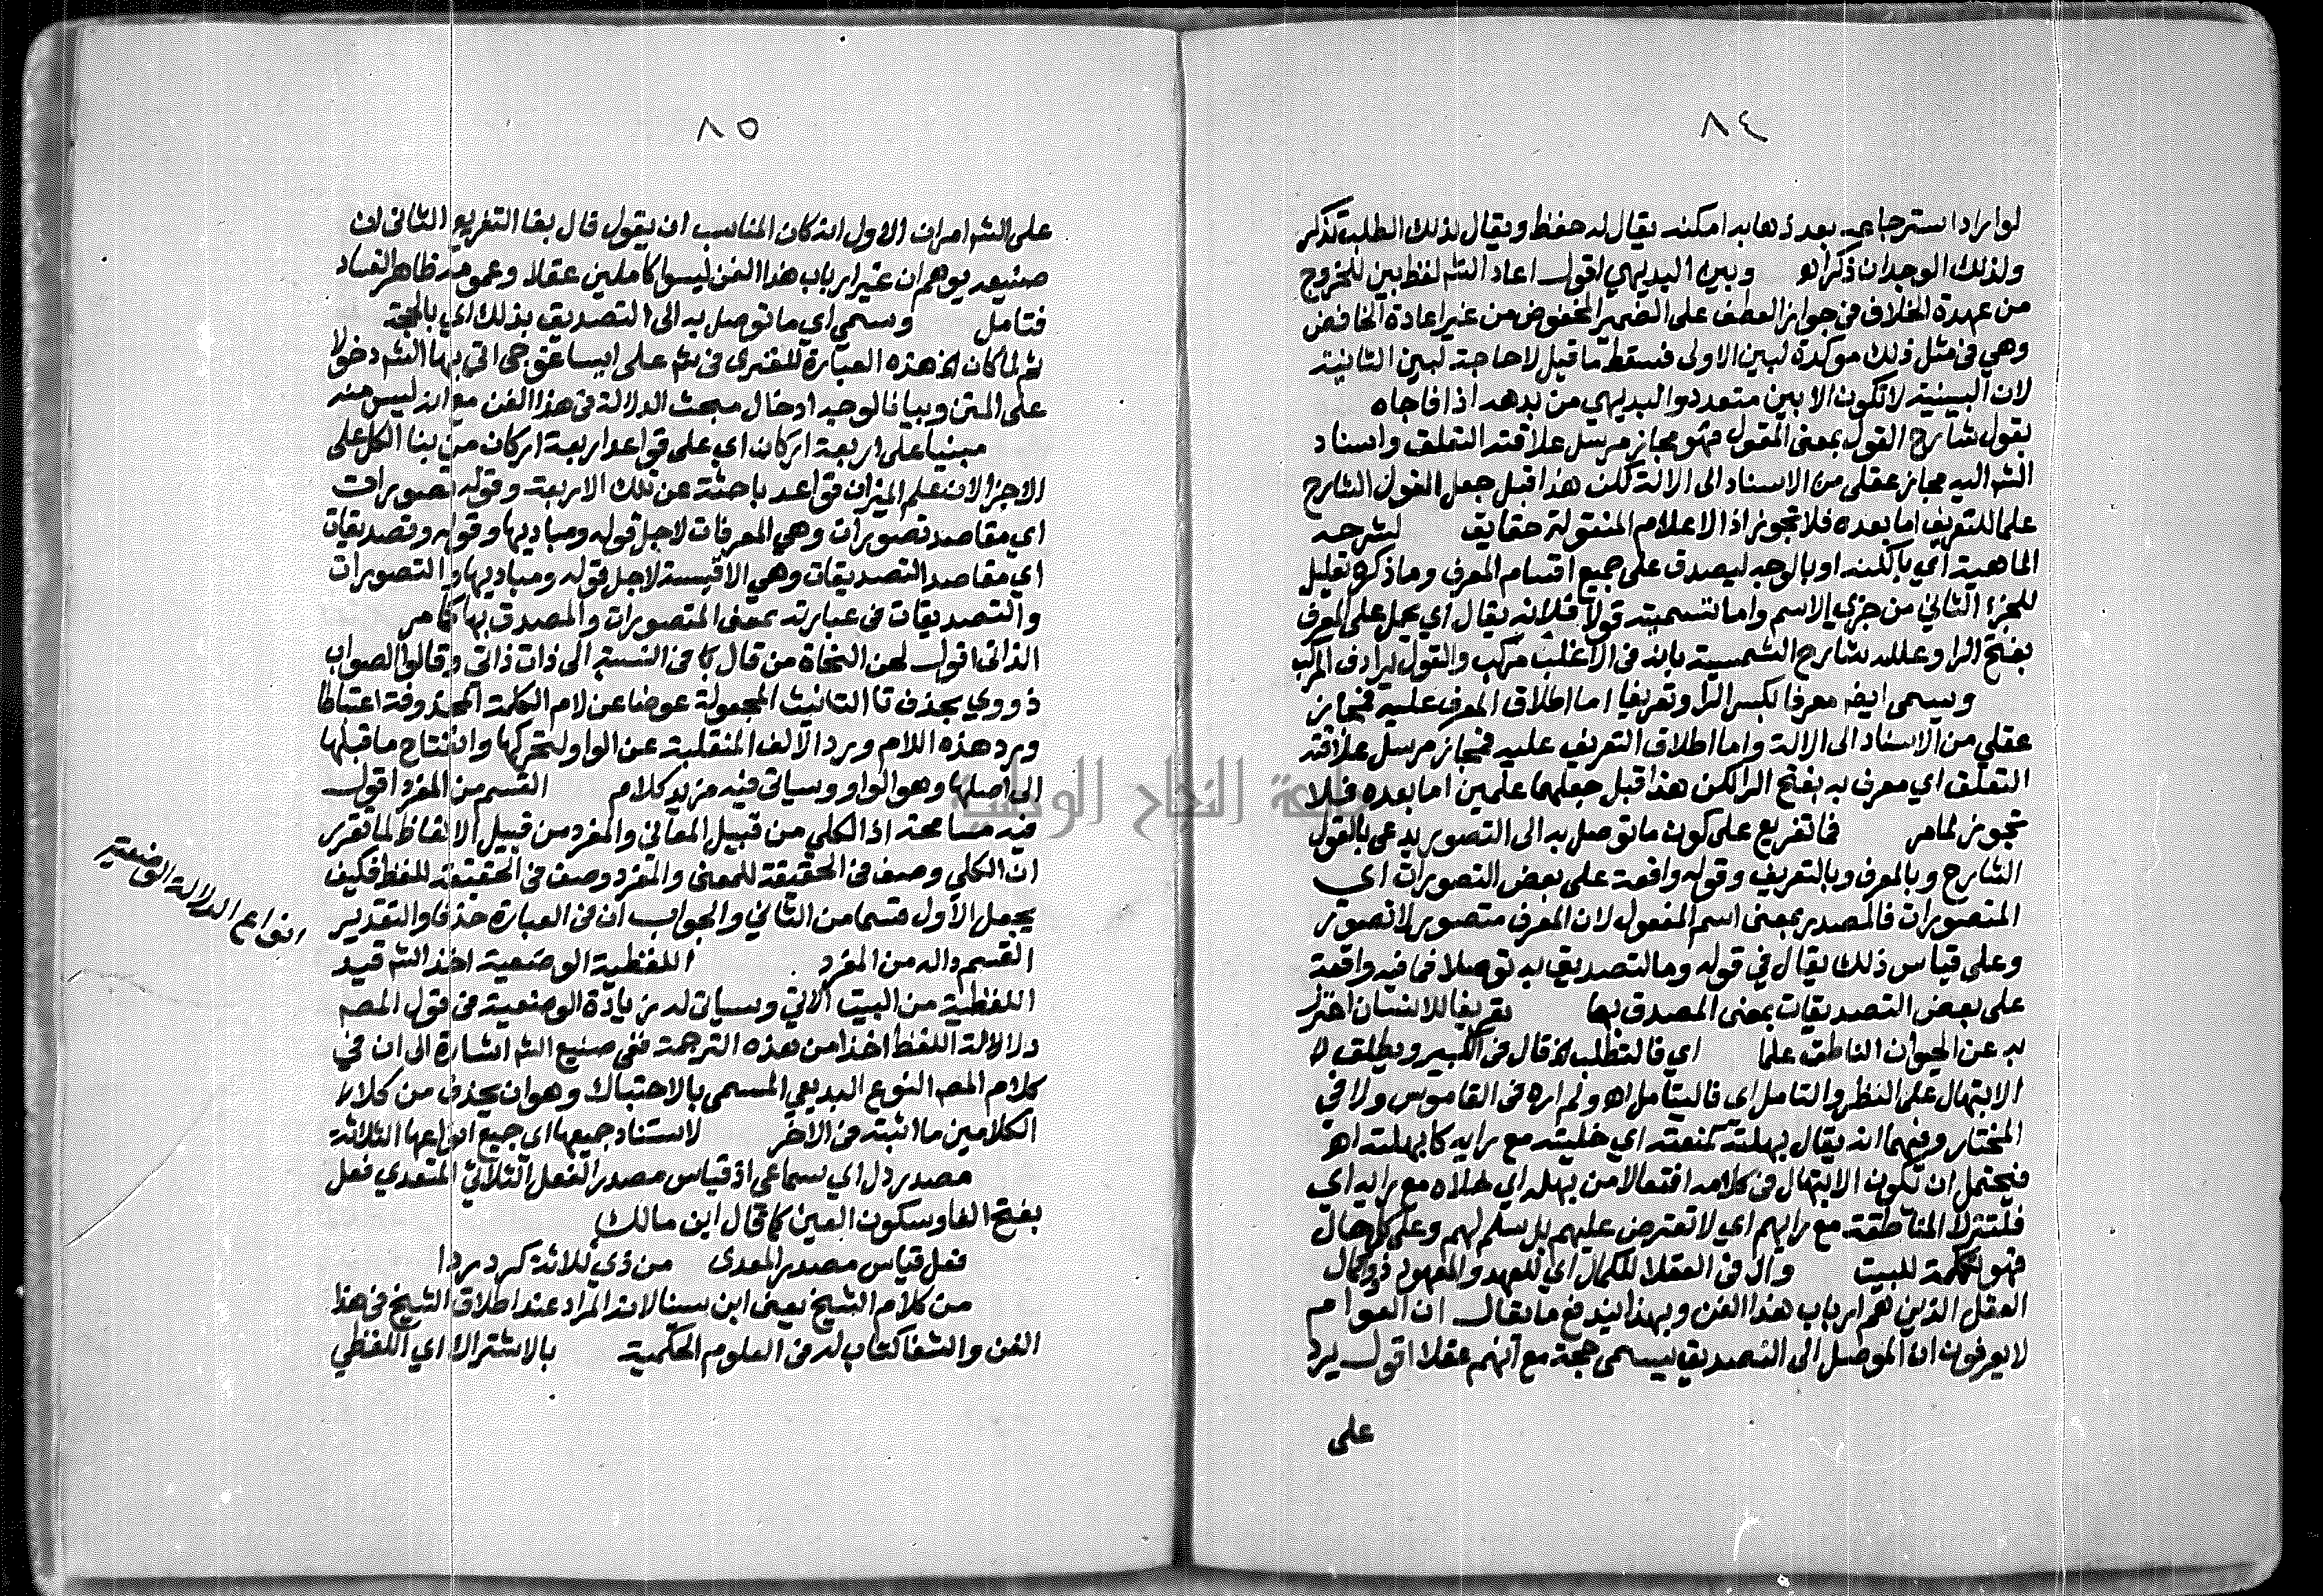 ٨٤
لو اراد استرجاعه بعد ذهابه امكنه يقال له حفظ ويقال لذلك الطلب تذكر
ولذلك الوجدان ذكر اه وبين البديهي اقول اعاد الشم لفظ بين للخروج
من عهدة الخلاف في جواز العطف على الضمير المخفوض من غير اعادة الخافض
وهي في مثل ذلك موكدة لبين الاولى فسقط ما قيل لا حاجة لبين الثانية
لان البينية لا تكون الا بين متعدد والبديهي من بدهه اذا فاجاه
بقول شارح القول بمعنى المقول فهو مجاز مرسل علاقته التعلق واسناد
الشم اليه مجاز عقلي من الاسناد الى الالة لكن هذا قبل جعل القول الشارح
علما للتعريف اما بعده فلا تجوز اذ الاعلام المنقولة حقايق لشرحه
الماهية اي بالكنه او بالوجه ليصدق على جميع اقسام المعرف وما ذكره تعليل
للجزء الثاني من جزي الاسم واما تسميته قولا فلانه يقال اي يحمل على المعرف
بفتح الرا وعلله شارح الشمسية بانه في الاغلب مركب والقول يرادف المركب
ويسمى ايضا معرفا بكسر الرا وتعريفا اما اطلاق المعرف عليه فمجاز
عقلي من الاسناد الى الالة واما اطلاق التعريف عليه فمجاز مرسل علاقته
التعلق اي معرف به بفتح الرا لكن هذا قبل جعلهما علمين اما بعده فلا
تجوز لما مر فما تفريع على كون ما توصل به الى التصور يدعى بالقول
الشارح وبالمعرف وبالتعريف وقوله واقعة على بعض التصورات اي
المتصورات فالمصدر بمعنى اسم المفعول لان المعرف متصور لا تصور
وعلى قياس ذلك يقال في قوله وما لتصديق به توصلا فما فيه واقعة
على بعض التصديقات بمعنى المصدق بها تعريفا للانسان احترز
به عن الحيوان الناطق علما اي فالتطلب قال في الكبير ويطلق
الابتهال على النظر والتامل اي فاليتامل اه ولم اره في القاموس ولا في
المختار وفيهما انه يقال بهلته كمنعته اي خليته مع رايه كابهلته اه
فيحتمل ان يكون الابتهال في كلامه افتعالا من بهله اي خلاه مع رايه اي
فلتترك المناطقة مع رايهم اي لا تعترض عليهم بل سلم لهم وعلى كل حال
فهو تكملة للبيت وال في العقلا للكمال اي للعهد والمعهود ذو كمال
العقل الذين هم ارباب هذا الفن وبهذا يندفع ما يقال ان العوام
لا يعرفون ان الموصل الى التصديق يسمى حجة مع انهم عقلا اقول يرد
على
٨٥
على الشم امران الاول انه كان المناسب ان يقول قال بفا التفريع الثاني ان
صنيعه يوهم ان غير ارباب هذا الفن ليسوا كاملين عقلا وعمومه ظاهر الفساد
فتامل وسمي اي ما توصل به الى التصديق بذلك اي بالحجة
ثم لما كان هذه العبارة للفنرى في شم على ايساغوجي اتى بها الشم دخولا
على المتن وبيانا لوجه ادخال مبحث الدلالة في هذا الفن مع انه ليس منه
مبنيا على اربعة اركان اي على قواعد اربعة اركان من بنا الكل على
الاجزا لان علم الميزان قواعد باحثة عن تلك الاربعة وقوله تصورات
اي مقاصد تصورات وهي المعرفات لاجل قوله ومباديها وقوله وتصديقات
اي مقاصد التصديقات وهي الاقيسة لاجل قوله ومباديها والتصورات
والتصديقات في عبارته بمعنى المتصورات والمصدق بها كما مر
الذاتي اقول لحن النحاة من قال كما في النسبة الى ذات ذاتي وقالوا الصواب
ذووي بحذف تا التانيث المجعولة عوضا عن لام الكلمة المحذوفة اعتباطا
ورد هذه اللام ورد الالف المنقلبة عن الواو لتحركها وانفتاح ما قبلها
الى اصلها وهو الواو وسياتي فيه مزيد كلام القسم من المفرد اقول
فيه مسامحة اذ الكلي من قبيل المعاني والمفرد من قبيل الالفاظ لما تقرر
ان الكلي وصف في الحقيقة للمعنى والمفرد وصف في الحقيقة للفظ فكيف
يجعل الاول قسما من الثاني والجواب ان في العبارة حذفا والتقدير
القسم داله من المفرد اللفظية الوضعية اخذ الشم قيد
اللفظية من البيت الاتي وسياتي له زيادة الوضعية في قول المصم
دلالة اللفظ اخذا من هذه الترجمة ففي صنيع الشم اشارة الى ان في
كلام المصم النوع البديعي المسمى بالاحتباك وهو ان يحذف من كلا
الكلامين ما اثبته في الاخر لاستناد جميعها اي جميع انواعها الثلاثة
مصدر دل اي سماعي اذ قياس مصدر الفعل الثلاثي المتعدي فعل
بفتح الفا وسكون العين كما قال ابن مالك
فعل قياس مصدر المعدى من ذي ثلاثة كرد ردا
من كلام الشيخ يعني ابن سينا لانه المراد عند اطلاق الشيخ في هذا
الفن والشفا كتاب له في العلوم الحكمية بالاشتراك اي اللفظي
انواع الدلالة الوضعية
جامعة النجاح الوطنية